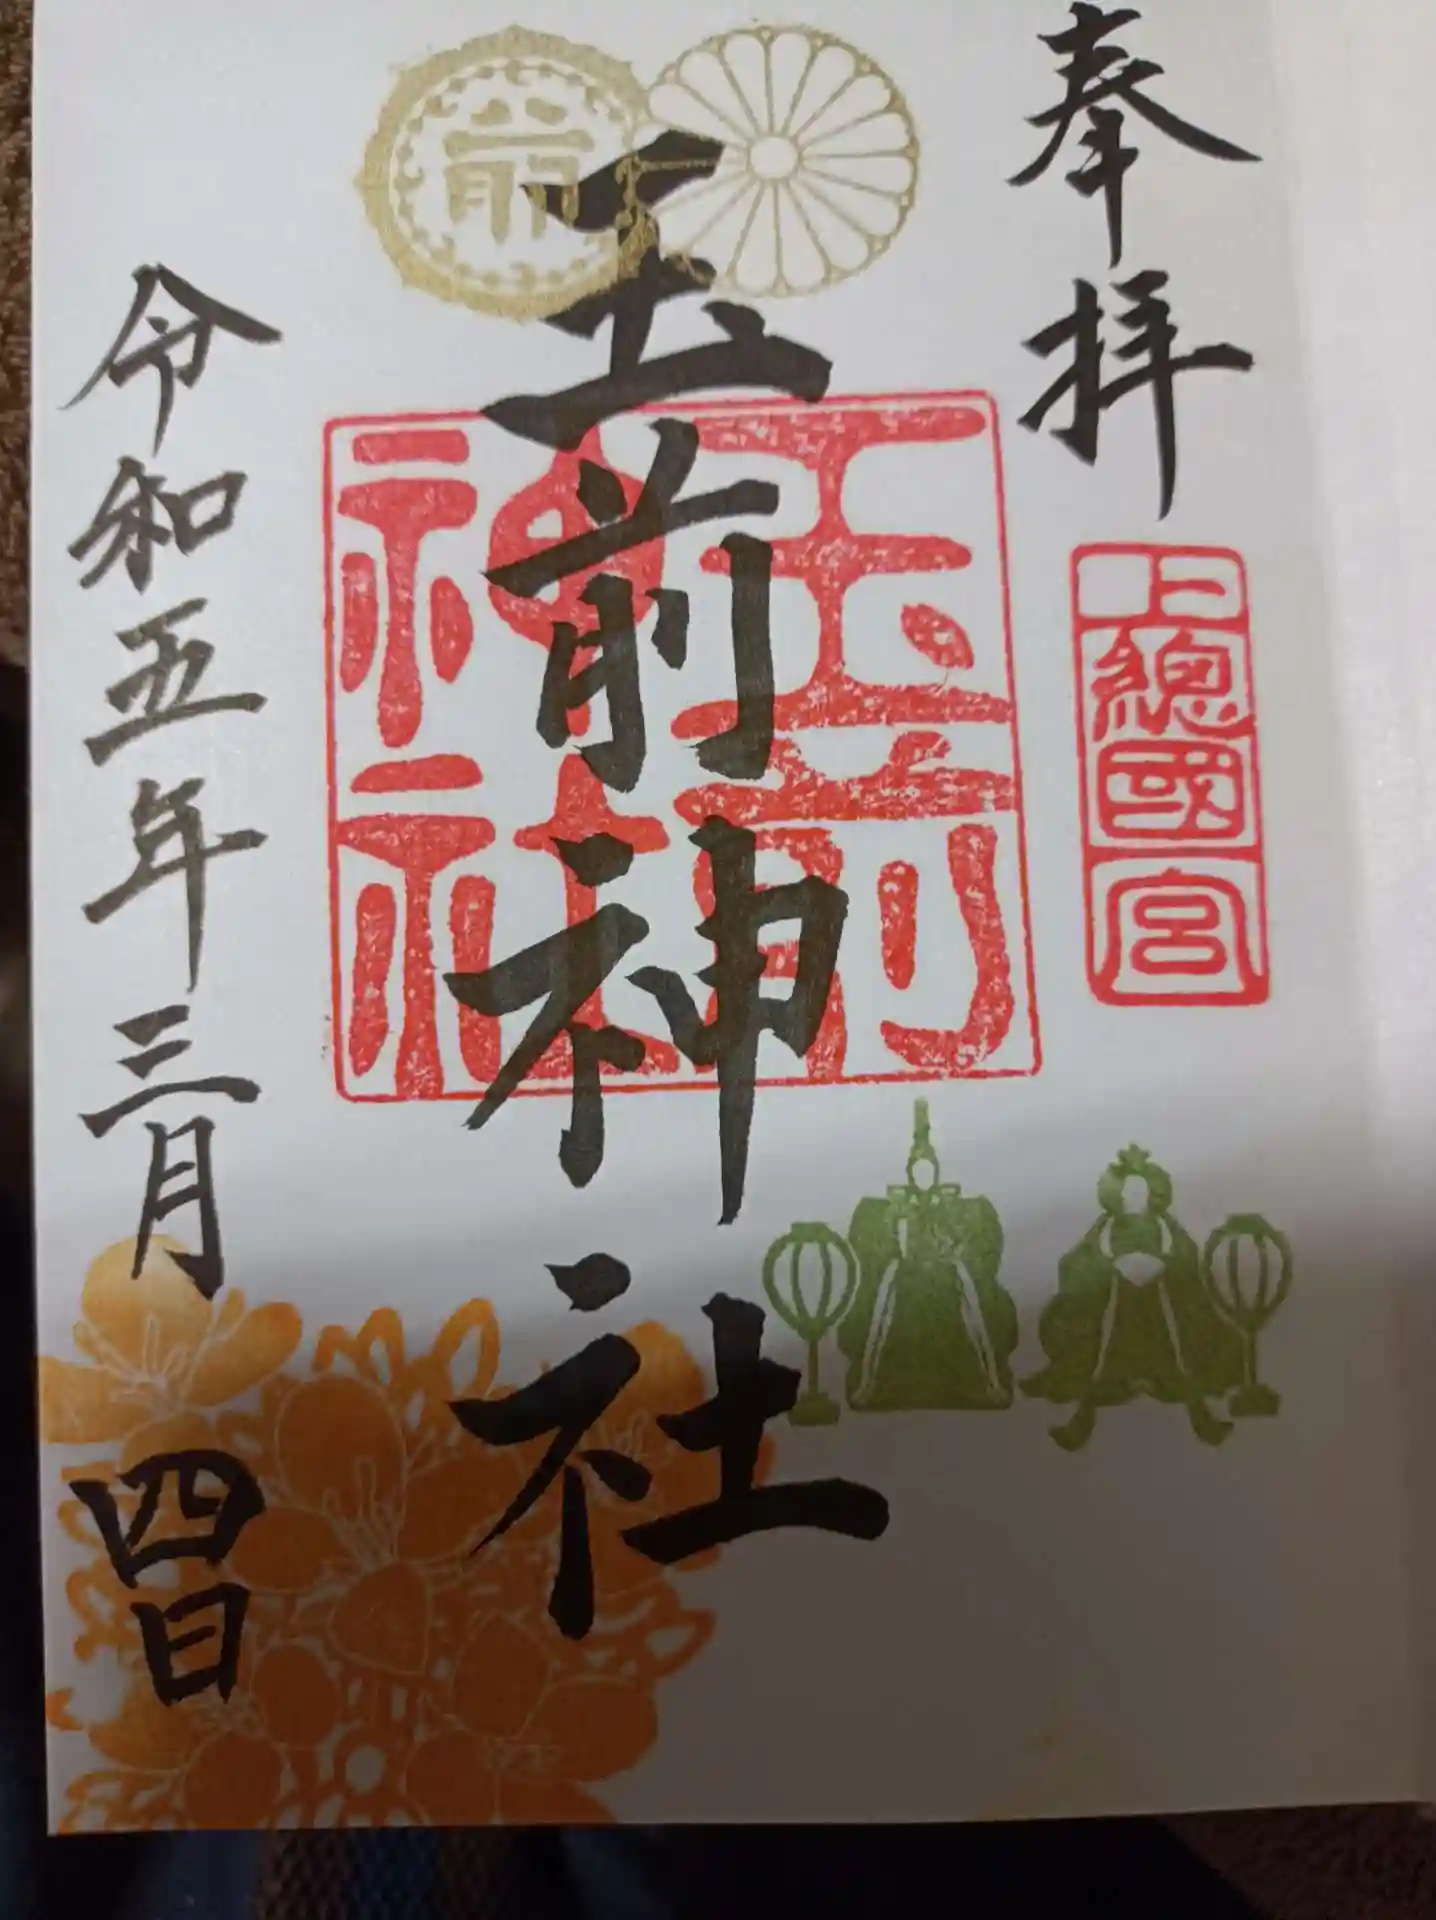 奉拝
上總國一宮
玉前神社
玉前神社
令和五年三月四日